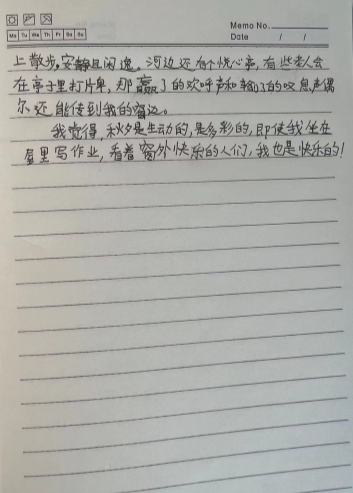 Memo No.
Mo Tu We Th Fr Sa Su
Date / /
上散步,安静且闲逸。河边还有个悦心亭,有些老人会
在亭子里打片单,那赢了的欢呼声和输了的叹息声偶
尔还能传到我的窗边。
我觉得,秋夕是生动的,是多彩的,即使我坐在
屋里写作业,看着窗外快乐的人们,我也是快乐的!